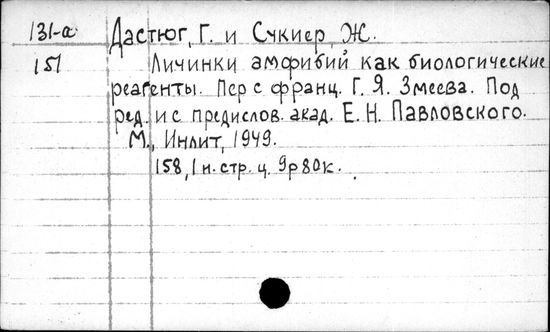 131-а Дастюг, Г. и Сукиер, Ж.
151 Личинки амфибий как биологические
реагенты. Пер с франц. Г. Я. Змеева. Под
ред. и с предислов. акад. Е. Н. Павловского.
М., Инлит, 1949.
158, 1 н. стр. ц. 9р80к.